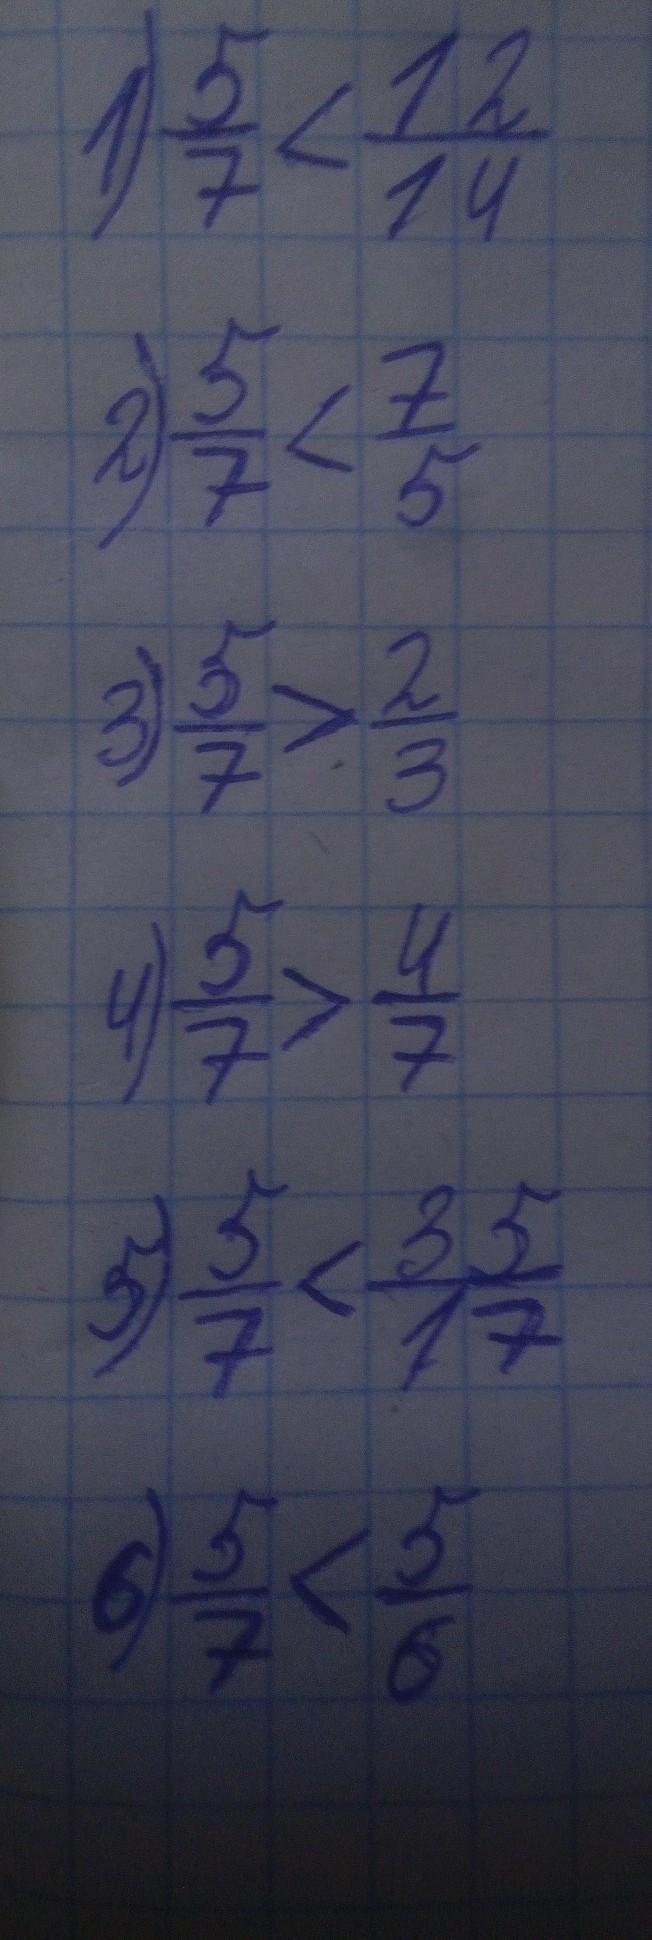 1) 5/7 < 12/14
2) 5/7 < 7/5
3) 5/7 > 2/3
4) 5/7 > 4/7
5) 5/7 < 35/17
6) 5/7 < 5/6